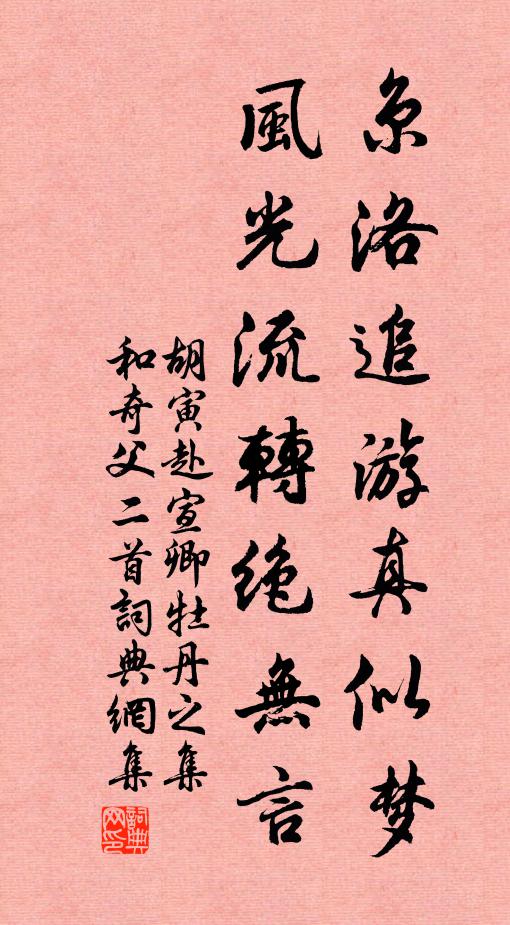 京洛追游真似梦
風光流轉絶無言
胡寅赴宣卿牡丹之集
和奇父二首詞典網集
詞典网印